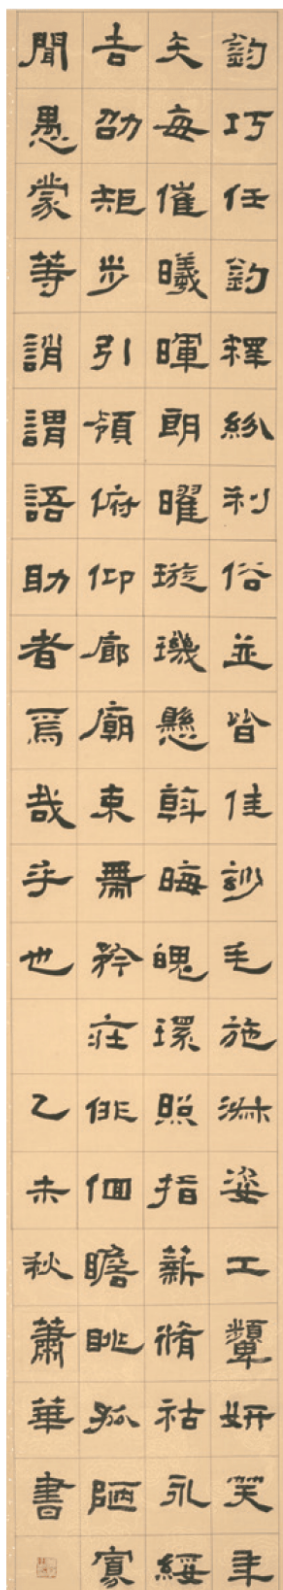 鈞巧任釣釋紛利俗並皆佳妙毛施淑姿工顰妍笑年
矢每催曦暉朗曜璇璣懸斡晦魄環照指薪脩祜永綏
吉劭矩步引領俯仰廊廟束帶矜莊俳佪瞻眺孤陋寡
聞愚蒙等誚謂語助者焉哉乎也 乙未秋蕭華書